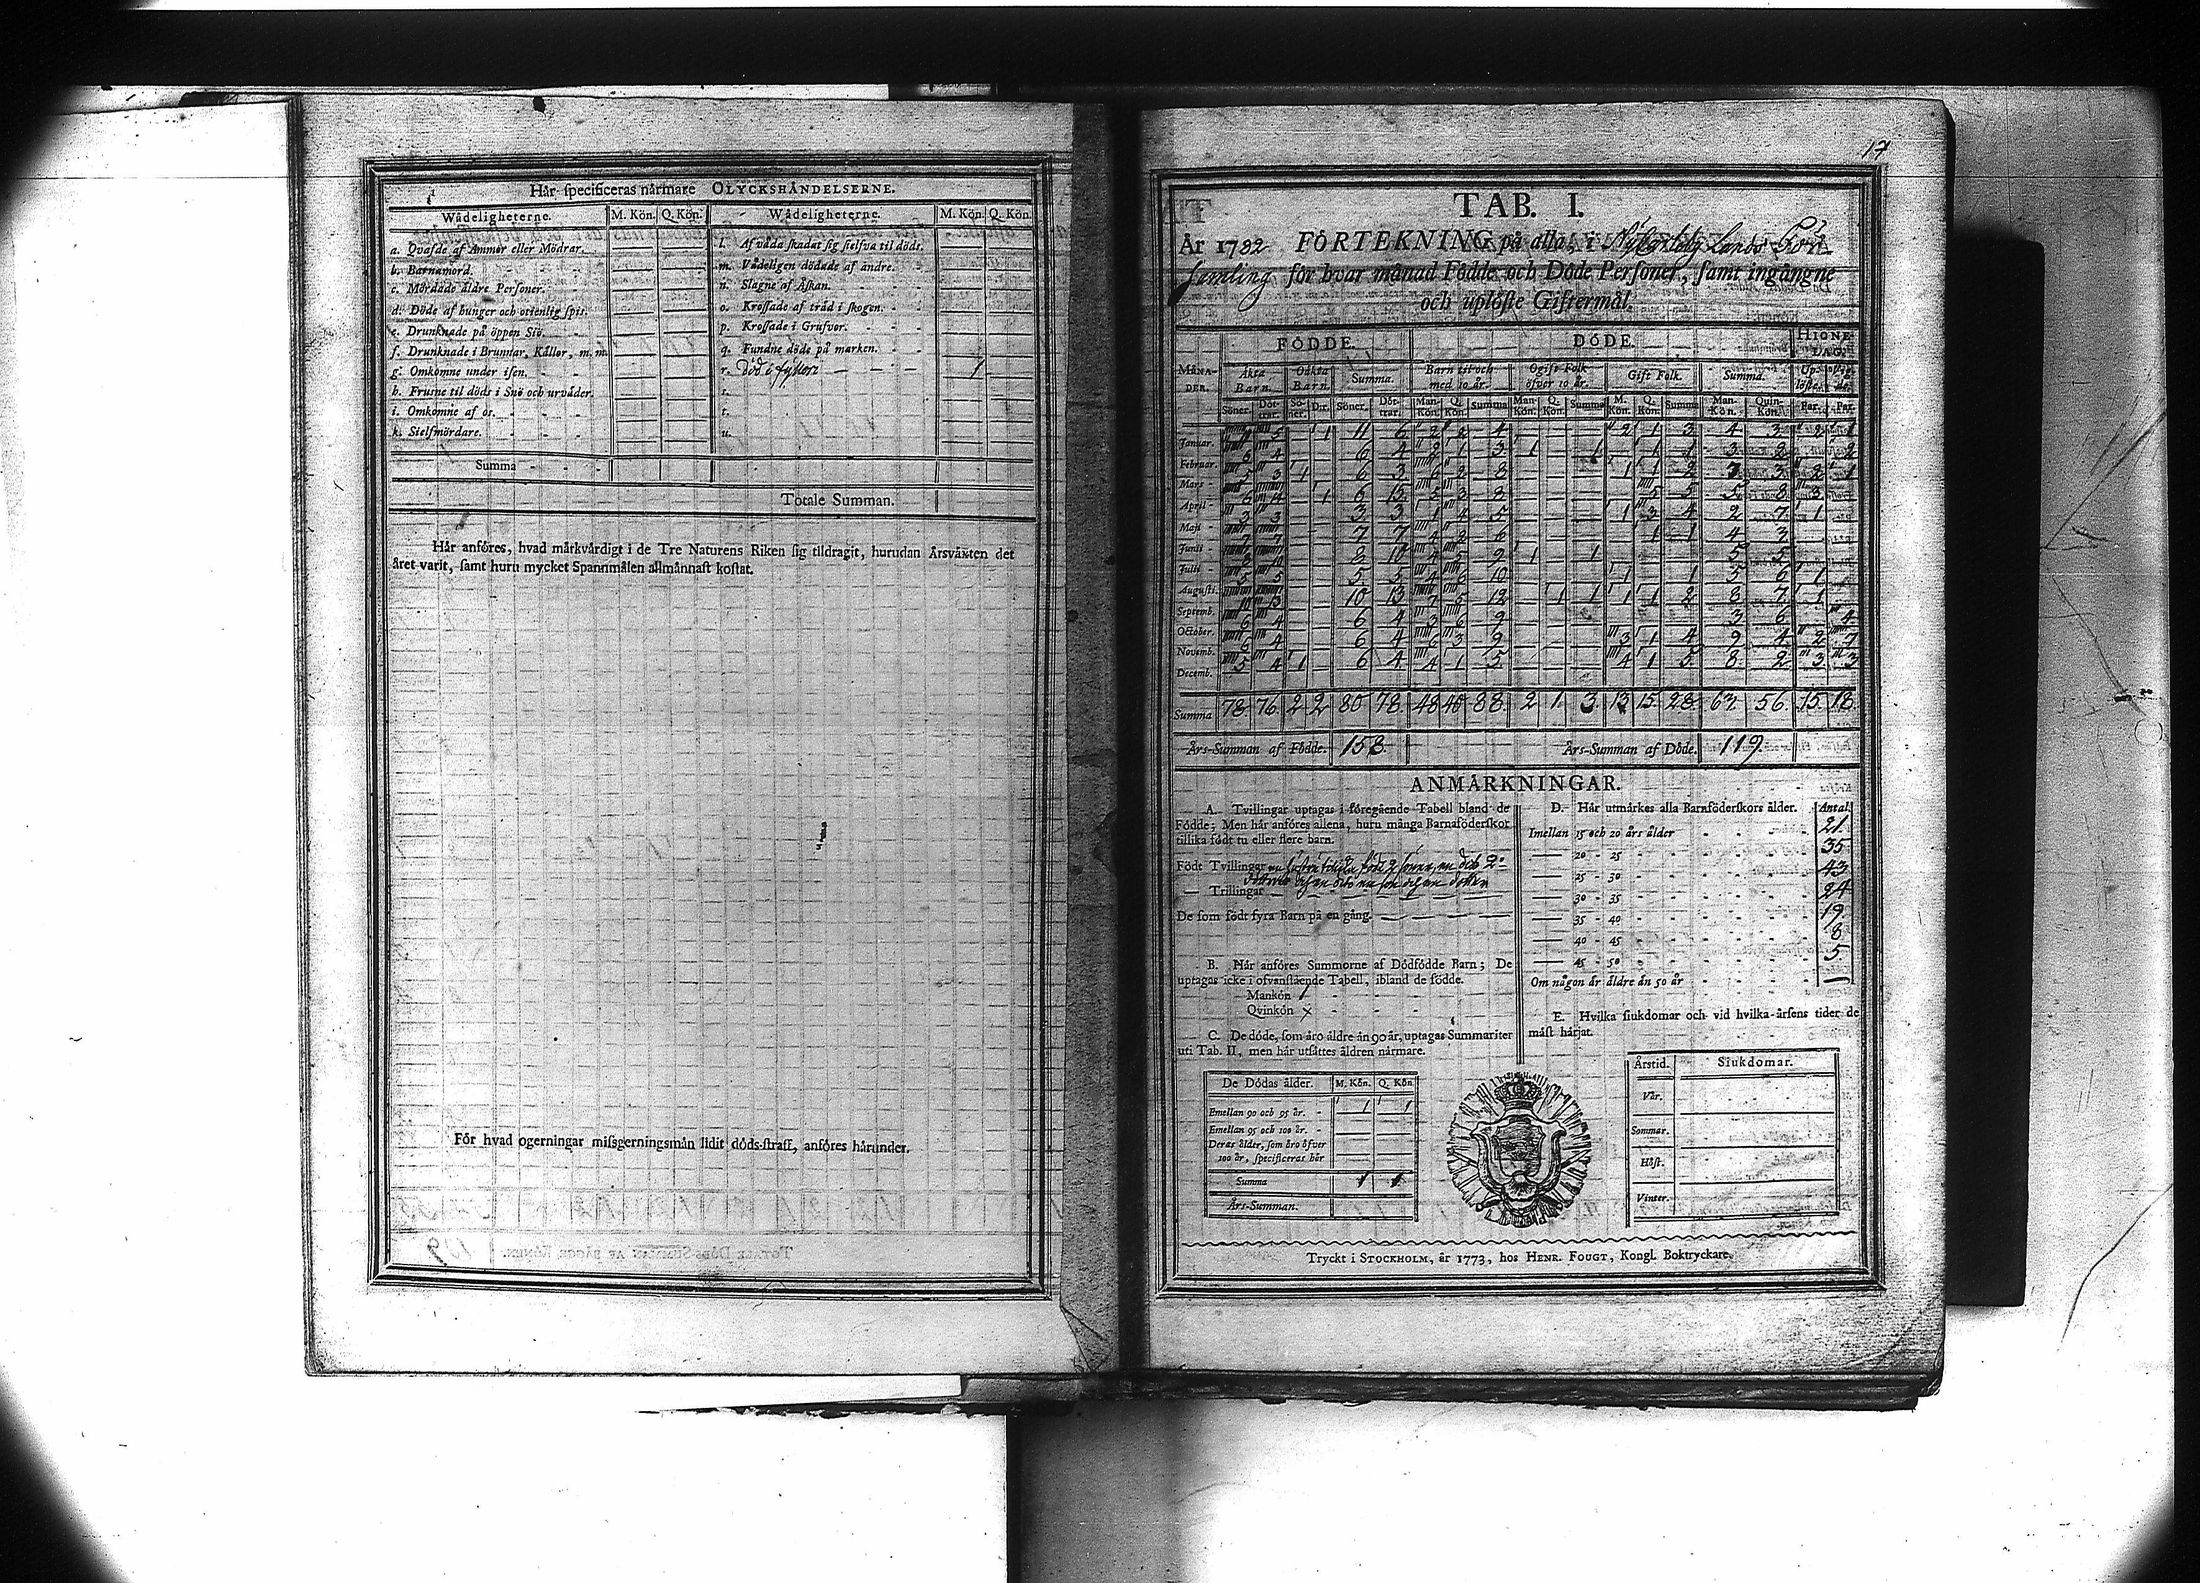 Här specificeras närmare OLYCKSHÄNDELSERNE.
Wådeligheterne. M. Kön. Q. Kön. Wådeligheterne. M. Kön. Q. Kön.
a. Qvafde af Ammor eller Mödrar. l. Af våda skadat sig sielfva til döds.
b. Barnamord. m. Vådeligen dödade af andre.
c. Mördade äldre Personer. n. Slagne af Åskan.
d. Döde af hunger och otienlig spis. o. Krossade af träd i skogen.
e. Drunknade på öppen Siö. p. Krossade i Grufvor.
f. Drunknade i Brunnar, Källor, m. m. q. Fundne döde på marken.
g. Omkomne under isen. r. död i fylleri 1
h. Frusne til döds i Snö och urväder. s.
i. Omkomne af os. t.
k. Sielfmördare. u.
Summa
Totale Summan.
Här anföres, hvad märkvärdigt i de Tre Naturens Riken sig tildragit, hurudan Årsväxten det
året varit, samt huru mycket Spannmålen allmännast kostat.
För hvad ogerningar missgerningsmän lidit döds-straff, anföres härunder.
17
TAB. I.
År 1782 FÖRTEKNING på alla, i Nykarleby Lands För-
samling för hvar månad Födde och Döde Personer, samt ingångne
och uplöste Giftermål.
FÖDDE. DÖDE. HIONE-LAG.
MÅNA-DER. Äkta Barn. Oäkta Barn. Summa. Barn til och med 10 år. Ogift Folk öfver 10 år. Gift Folk. Summa. Up-löste. Vig-de.
Söner. Döt-trar. Sö-ner. D:r. Söner. Döt-trar. Man-Kön. Q. Kön. Summa Man-Kön. Q. Kön. Summa M. Kön. Q. Kön. Summa Man-Kön. Quin-Kön. Par. Par.
Januar. 5 1 11 6 2 2 4 2 1 3 4 3 2 1
Februar. 6 4 6 4 2 1 3 1 1 1 1 3 2 2
Mars 5 3 1 6 3 6 2 8 1 1 2 7 3 2 1
April 6 1 6 15 5 3 8 5 5 5 8 3
Maji 3 3 3 3 1 4 5 1 3 4 2 7 1
Junii 7 7 7 7 4 2 6 1 1 4 3
Julii 8 10 8 10 4 5 9 1 1 5 5
Augusti. 5 5 5 5 4 6 10 1 1 5 6 1
Septemb. 10 13 10 13 7 5 12 1 1 1 1 2 8 7 1
October. 6 4 6 4 3 6 9 3 6 4
Novemb. 6 4 6 4 6 3 9 3 1 4 9 4 2 7
Decemb. 5 4 1 6 4 4 1 5 4 1 5 8 2 3 3
Summa 78 76 2 2 80 78 48 40 88 2 1 3 13 15 28 63 56 15 18
Års-Summan af Födde. 158. Års-Summan af Döde. 119.
ANMÄRKNINGAR.
A. Tvillingar uptagas i föregående Tabell bland de
Födde; Men här anföres allena, huru många Barnaföderskor
tillika födt tu eller flere barn.
Födt Tvillingar
— Trillingar
De som födt fyra Barn på en gång.
B. Här anföres Summorne af Dödfödde Barn; De
uptagas icke i ofvanstående Tabell, ibland de födde.
Mankön
Qvinkön
C. De döde, som äro äldre än 90 år, uptagas Summariter
uti Tab. II, men här utsättes åldren närmare.
De Dödas ålder. M. Kön. Q. Kön.
Emellan 90 och 95 år. 1 1
Emellan 95 och 100 år.
Deras ålder, som äro öfver
100 år, specificeras här
Summa 1 1
Års-Summan.
D. Här utmärkes alla Barnföderskors ålder. Antal
Imellan 15 och 20 års ålder 21
20 - 25 35
25 - 30 43
30 - 35 24
35 - 40 19
40 - 45 8
45 - 50 5
Om någon är äldre än 50 år
E. Hvilka siukdomar och vid hvilka årsens tider de
mäst härjat.
Årstid. Siukdomar.
Vår.
Sommar.
Höst.
Vinter.
Tryckt i STOCKHOLM, år 1773, hos HENR. FOUGT, Kongl. Boktryckare.